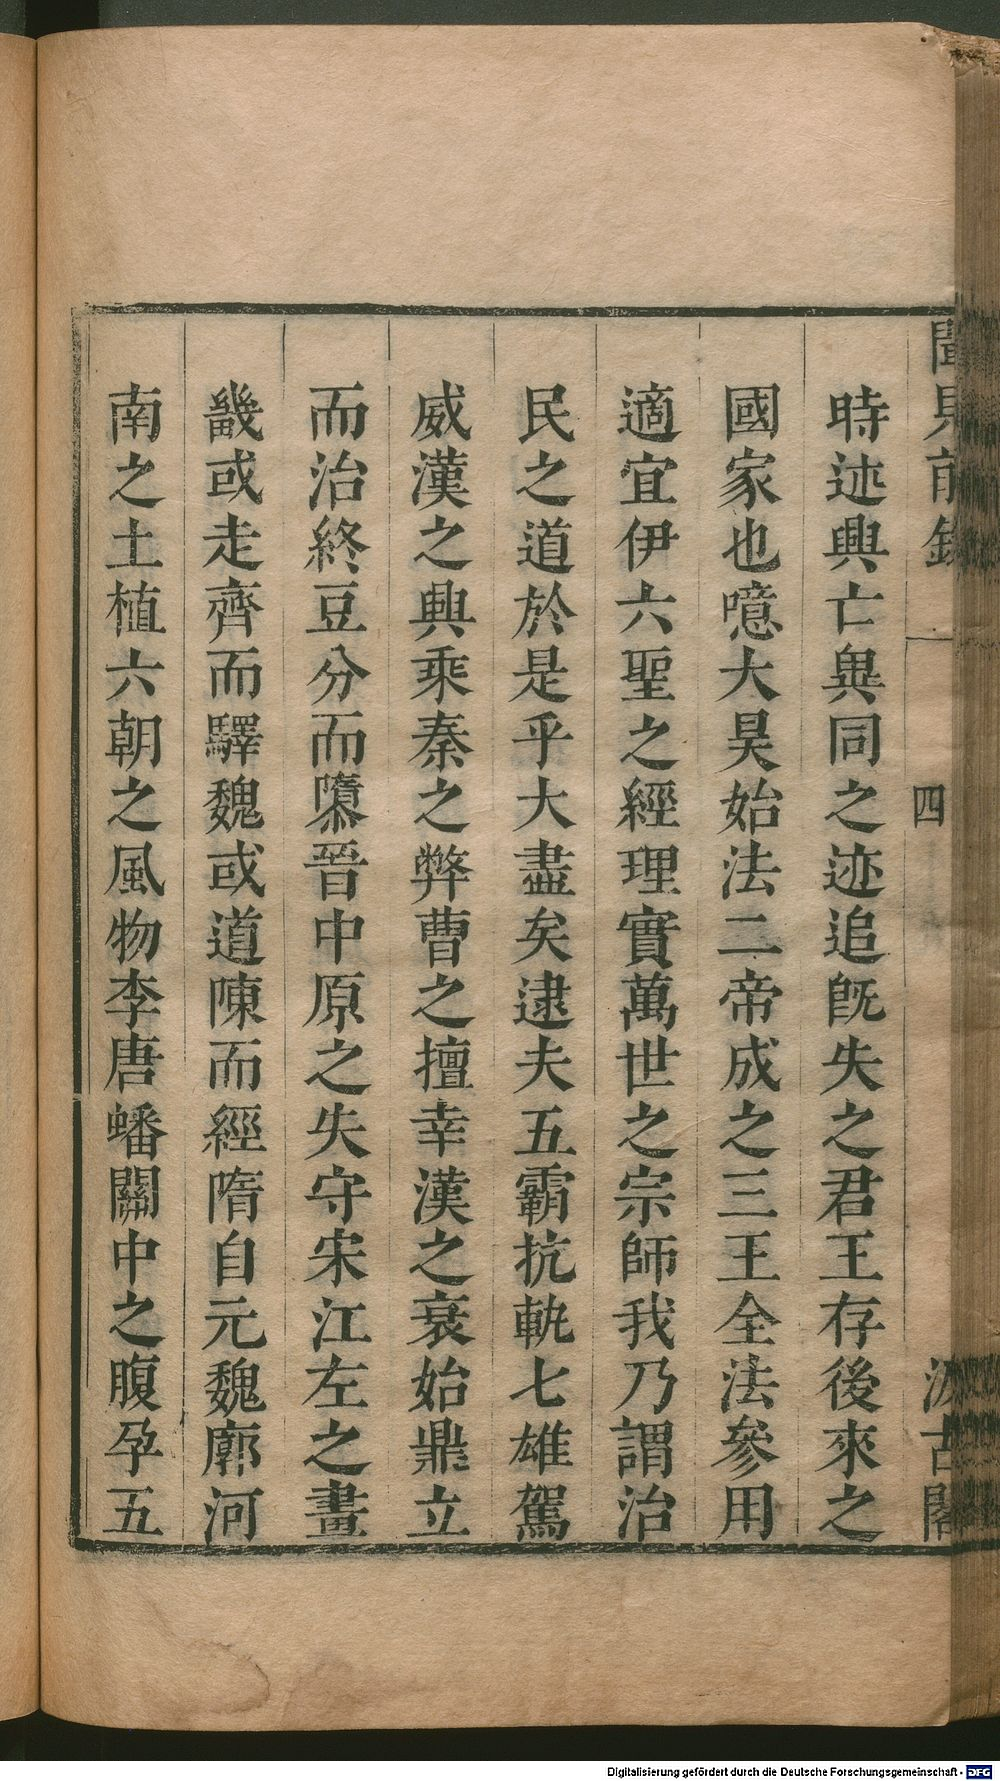 聞見前錄
四
汲古閣
時述興亡與同之迹追旣失之君王存後來之
國家也噫大昊始法二帝成之三王全法參用
適宜伊六聖之經理實萬世之宗師我乃謂治
民之道於是乎大盡矣逮夫五霸抗軌七雄駕
威漢之興乘秦之弊曹之擅幸漢之衰始鼎立
而治終豆分而隳晉中原之失守宋江左之畫
畿或走齊而驛魏或道陳而經隋自元魏廓河
南之土植六朝之風物李唐蟠關中之腹孕五
Digitalisierung gefördert durch die Deutsche Forschungsgemeinschaft - DFG